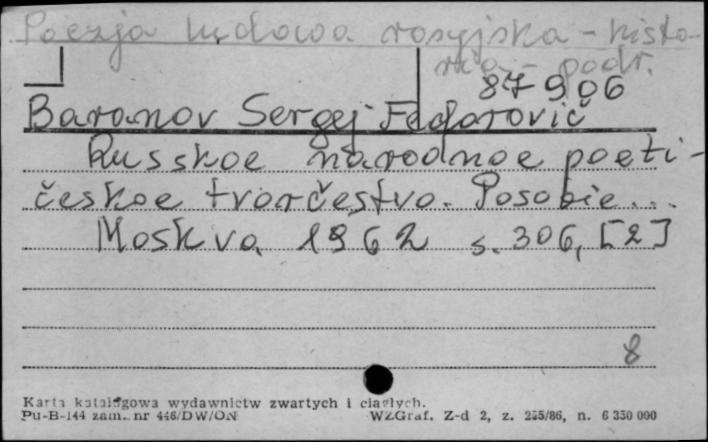 Poezja ludowa rosyjska - histo-
ria - podr.
87906
Baranov Sergej Fedorovič
Russkoe narodnoe poeti-
českoe tvorčestvo. Posobie...
Moskva 1962 s. 306, [2]
8
Karta katalogowa wydawnictw zwartych i ciągłych.
Pu-B-144 zam. nr 446/DW/ON WZGraf. Z-d 2, z. 255/86, n. 6 350 000